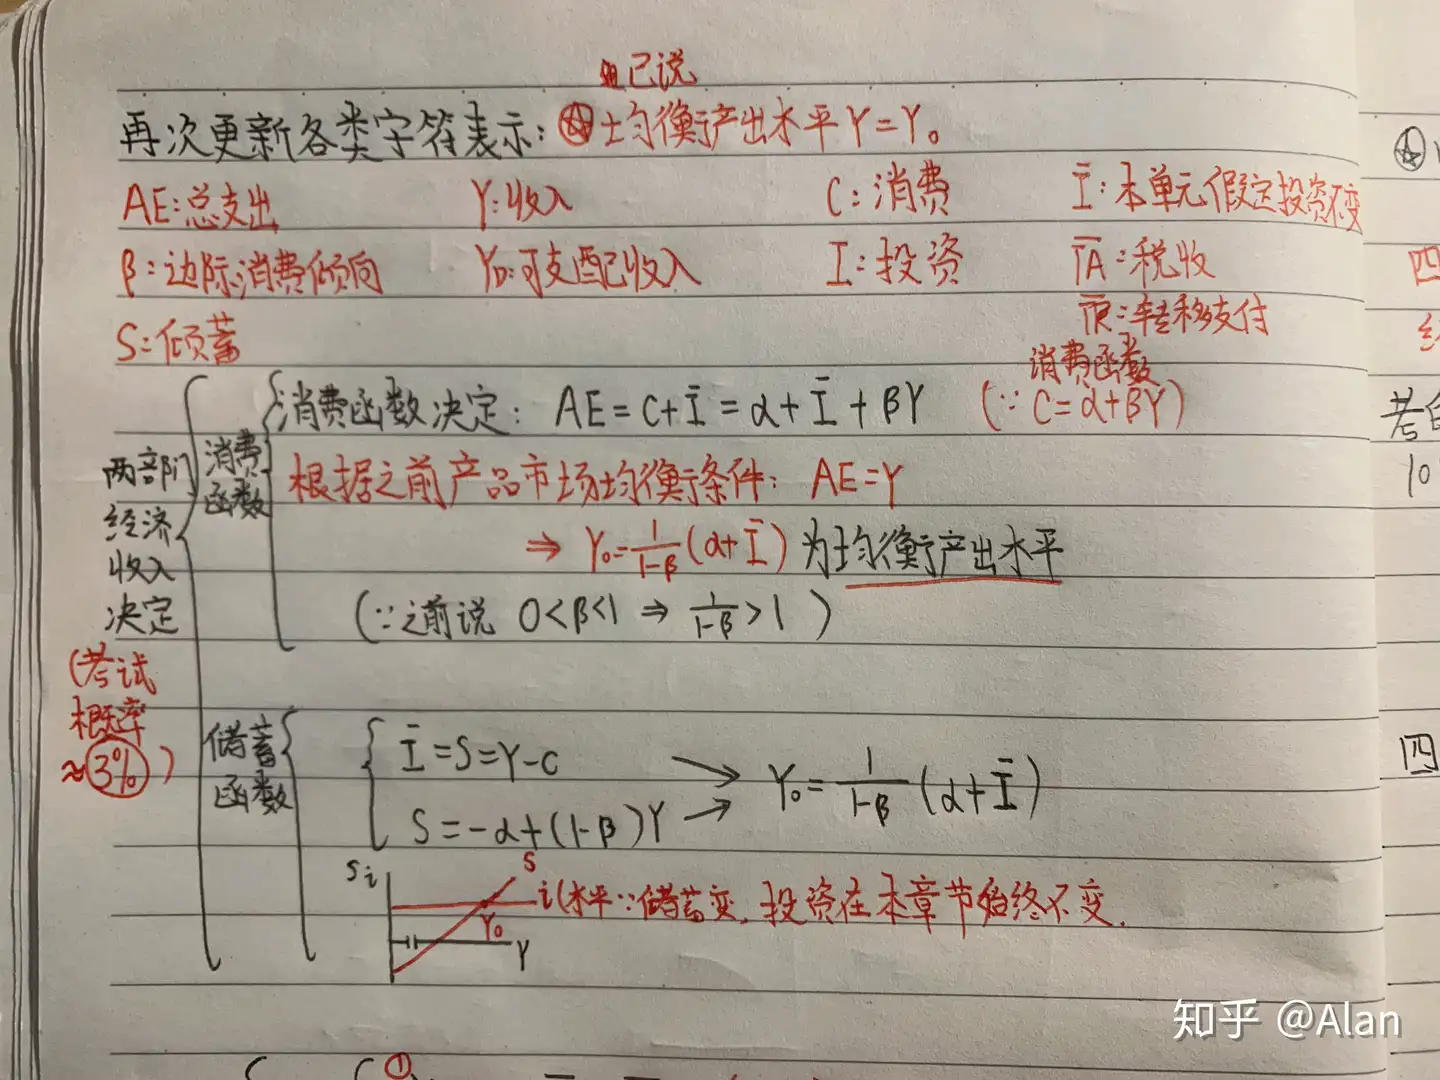 已说
再次更新各类字符表示：均衡产出水平 Y=Y₀
AE：总支出 Y：收入 C：消费 Ī：本单元假定投资不变
β：边际消费倾向 Y_D：可支配收入 I：投资 T̄A：税收
T̄R：转移支付
S：倾蓄
消费函数
消费函数决定：AE=C+Ī=α+Ī+βY (∵C=α+βY)
两部门经济收入决定
(考试概率≈3%)
消费函数
根据之前产品市场均衡条件：AE=Y
⇒ Y₀=1/(1-β)(α+Ī) 为均衡产出水平
(∵之前说 0<β<1 ⇒ 1/(1-β)>1)
储蓄函数
Ī=S=Y-C
S=-α+(1-β)Y
Y₀=1/(1-β)(α+Ī)
S i
S
i(水平∵储蓄变,投资在本章节始终不变.
Y₀
Y
①
四
考
10
四
知乎 @Alan